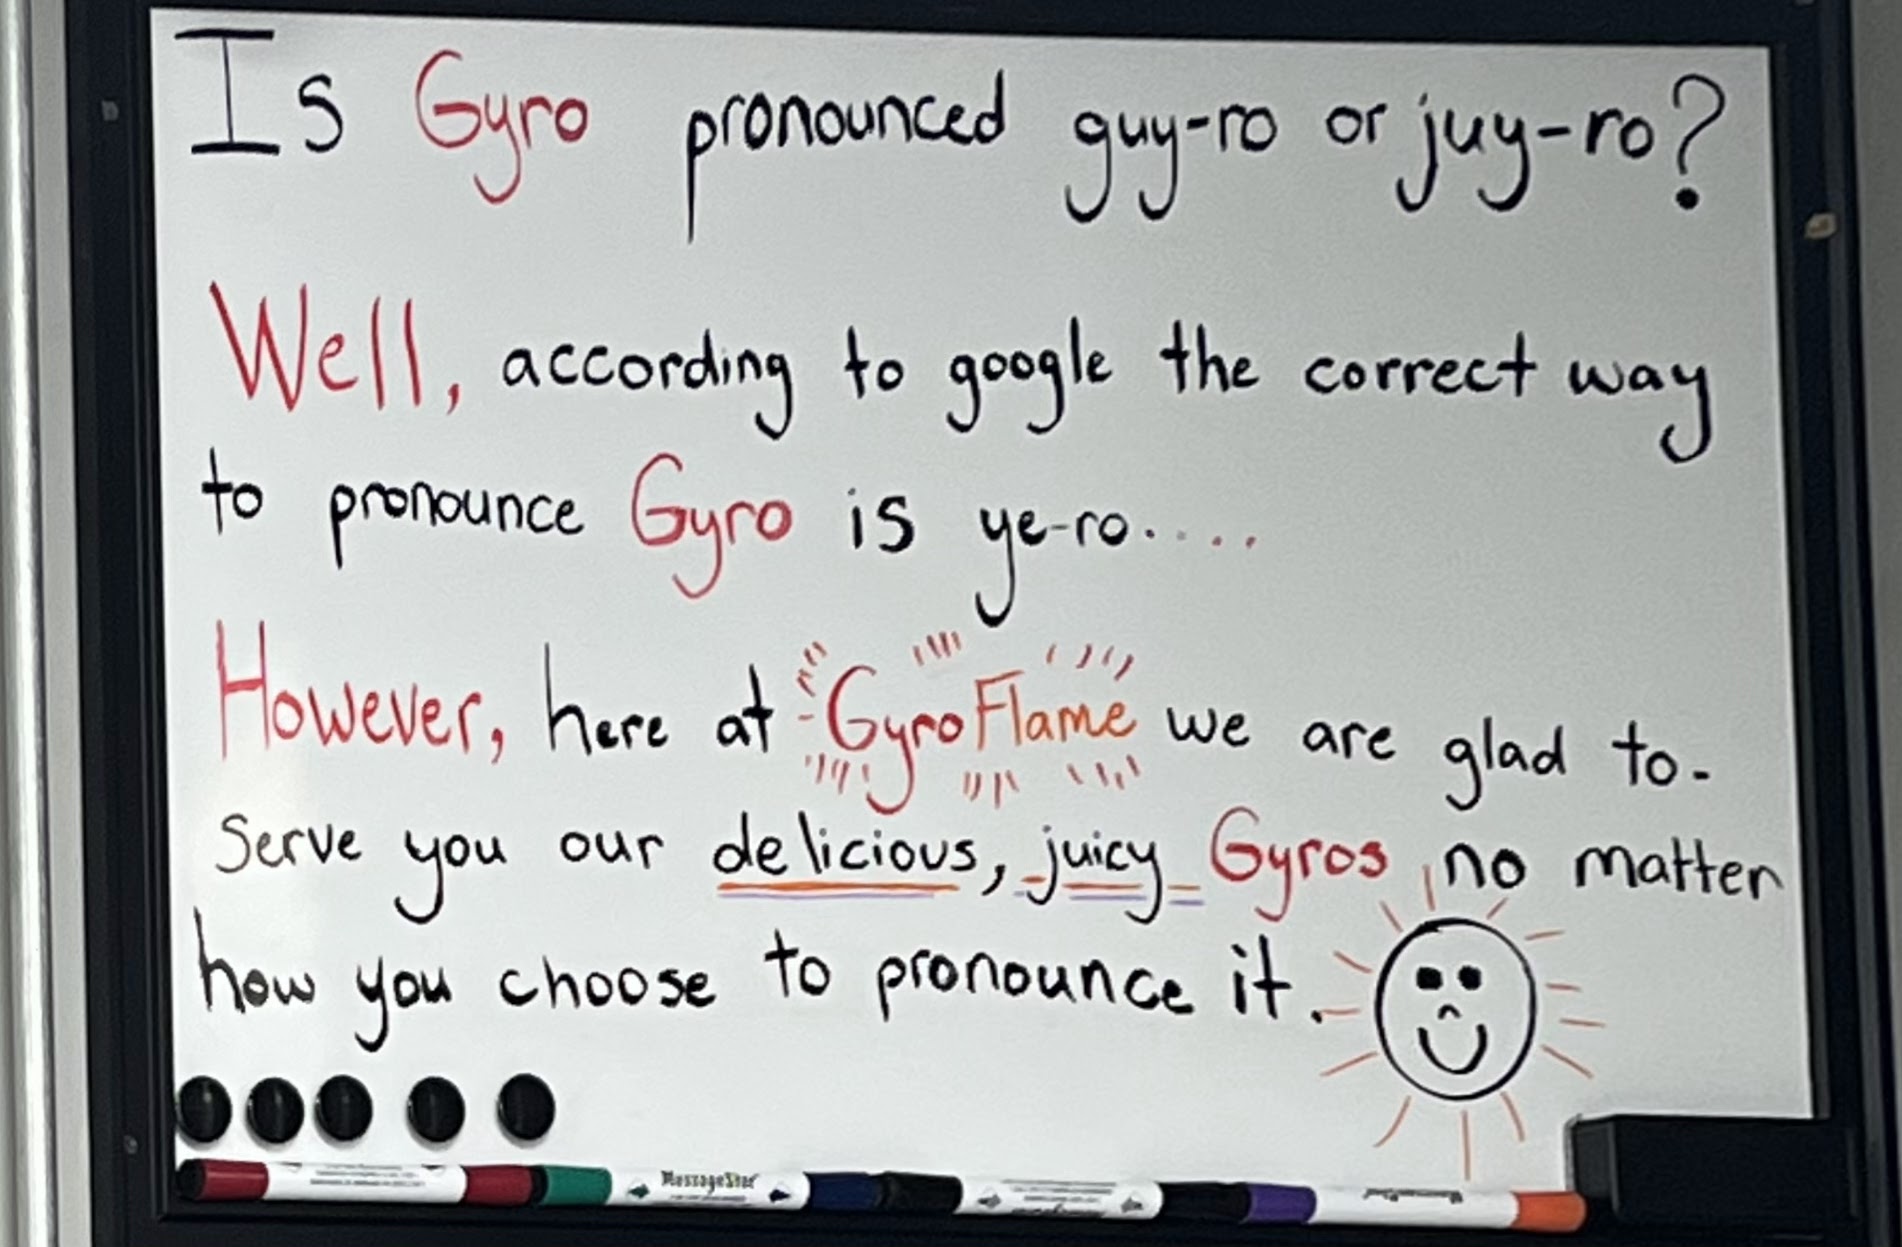 Is Gyro pronounced guy-ro or juy-ro?
Well, according to google the correct way
to pronounce Gyro is ye-ro.....
However, here at GyroFlame we are glad to-
serve you our delicious, juicy Gyros no matter
how you choose to pronounce it.
MessageStor